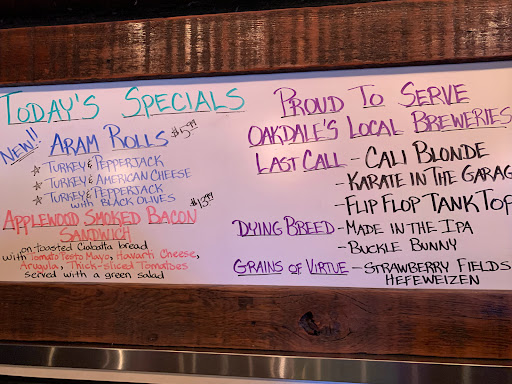 TODAY'S SPECIALS
NEW!! ARAM ROLLS $15.99
☆ TURKEY & PEPPERJACK
☆ TURKEY & AMERICAN CHEESE
☆ TURKEY & PEPPERJACK
WITH BLACK OLIVES
APPLEWOOD SMOKED BACON $13.99
SANDWICH
on toasted Ciabatta bread
with Tomato Pesto Mayo, Havarti Cheese,
Arugula, Thick-sliced Tomatoes
served with a green salad
PROUD TO SERVE
OAKDALE'S LOCAL BREWERIES
LAST CALL - CALI BLONDE
- KARATE IN THE GARAG
- FLIP FLOP TANK TOP
DYING BREED - MADE IN THE IPA
- BUCKLE BUNNY
GRAINS OF VIRTUE - STRAWBERRY FIELDS
HEFEWEIZEN